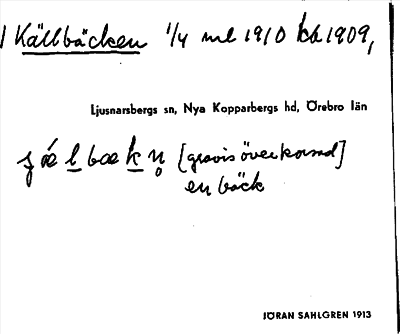 Källbäcken 1/4 ml 1910 kb 1909,
Ljusnarsbergs sn, Nya Kopparbergs hd, Örebro län
bæk [gravis överkorsad]
en bäck
JÖRAN SAHLGREN 1913